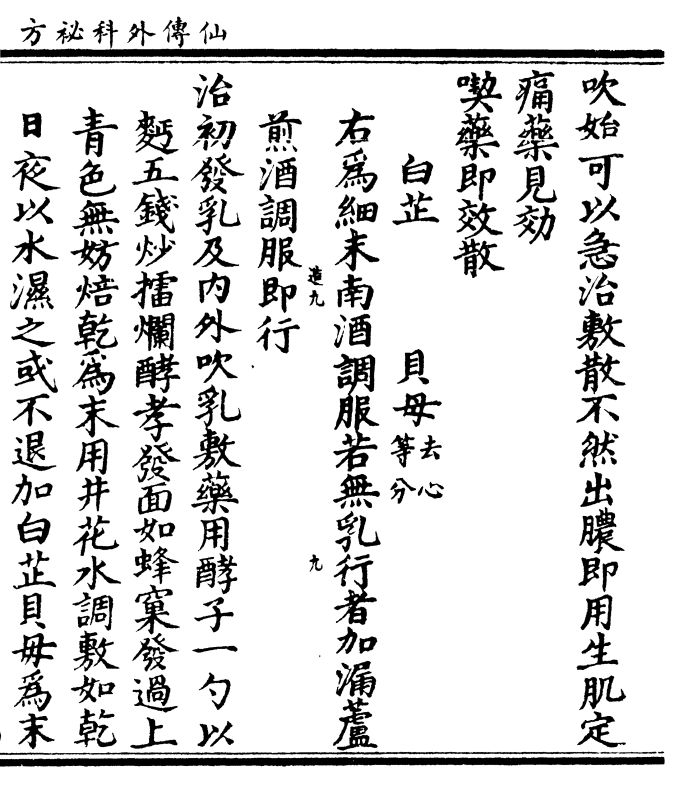 仙傳外科祕方
吹始可以急治敷散不然出膿即用生肌定
痛藥見効
喫藥即效散
白芷 貝母去心等分
右爲細末南酒調服若無乳行者加漏蘆
造九 九
煎酒調服即行
治初發乳及内外吹乳敷藥用酵子一勺以
麪五錢炒擂爛酵孝發面如蜂窠發過上
青色無妨焙乾爲末用井花水調敷如乾
日夜以水濕之或不退加白芷貝母爲末